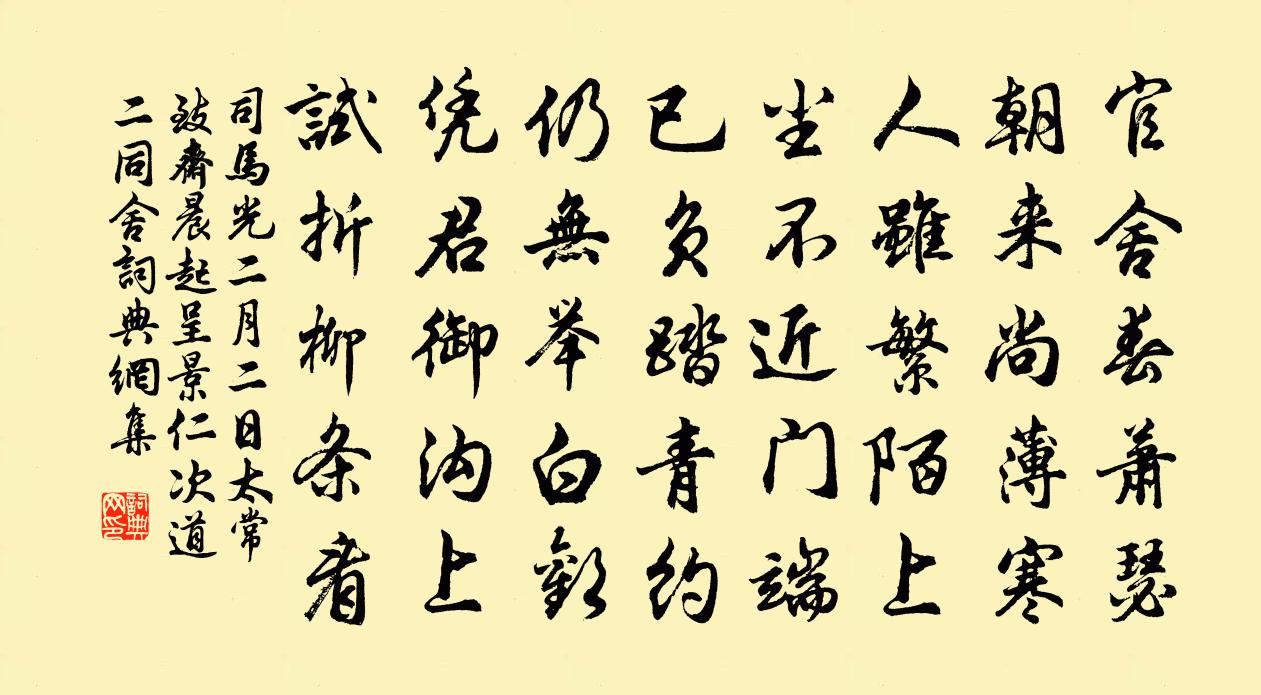 官舍春萧瑟
朝来尚薄寒
人雖繁陌上
坐不近门端
已负踏青约
仍無举白歡
凭君御沟上
試折柳条看
司馬光二月二日太常
致齋晨起呈景仁次道
二同舍詞典網集
詞典网印